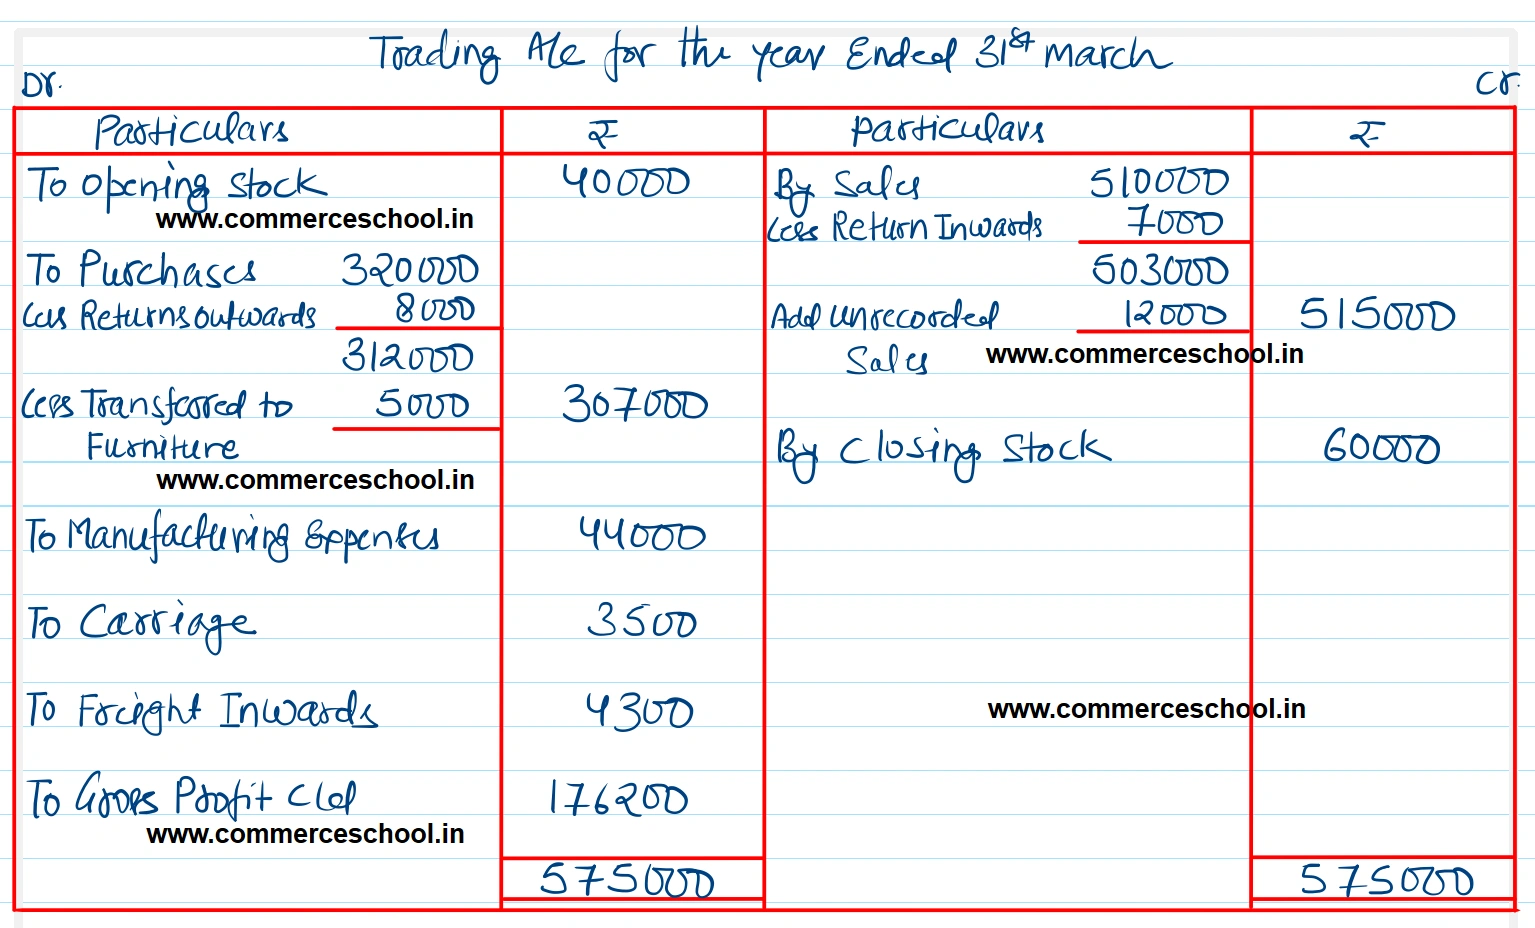 Trading A/c for the year Ended 31st March
Dr. Cr.
Particulars ₹ Particulars ₹
To Opening Stock 40000 By Sales 510000
www.commerceschool.in
Less Return Inwards 7000
To Purchases 320000 503000
Less Returns outwards 8000 Add Unrecorded Sales 12000 515000
312000 www.commerceschool.in
Less Transferred to Furniture 5000 307000
By Closing Stock 60000
www.commerceschool.in
To Manufacturing Expenses 44000
To Carriage 3500
To Freight Inwards 4300
www.commerceschool.in
To Gross Profit c/d 176200
www.commerceschool.in
575000 575000